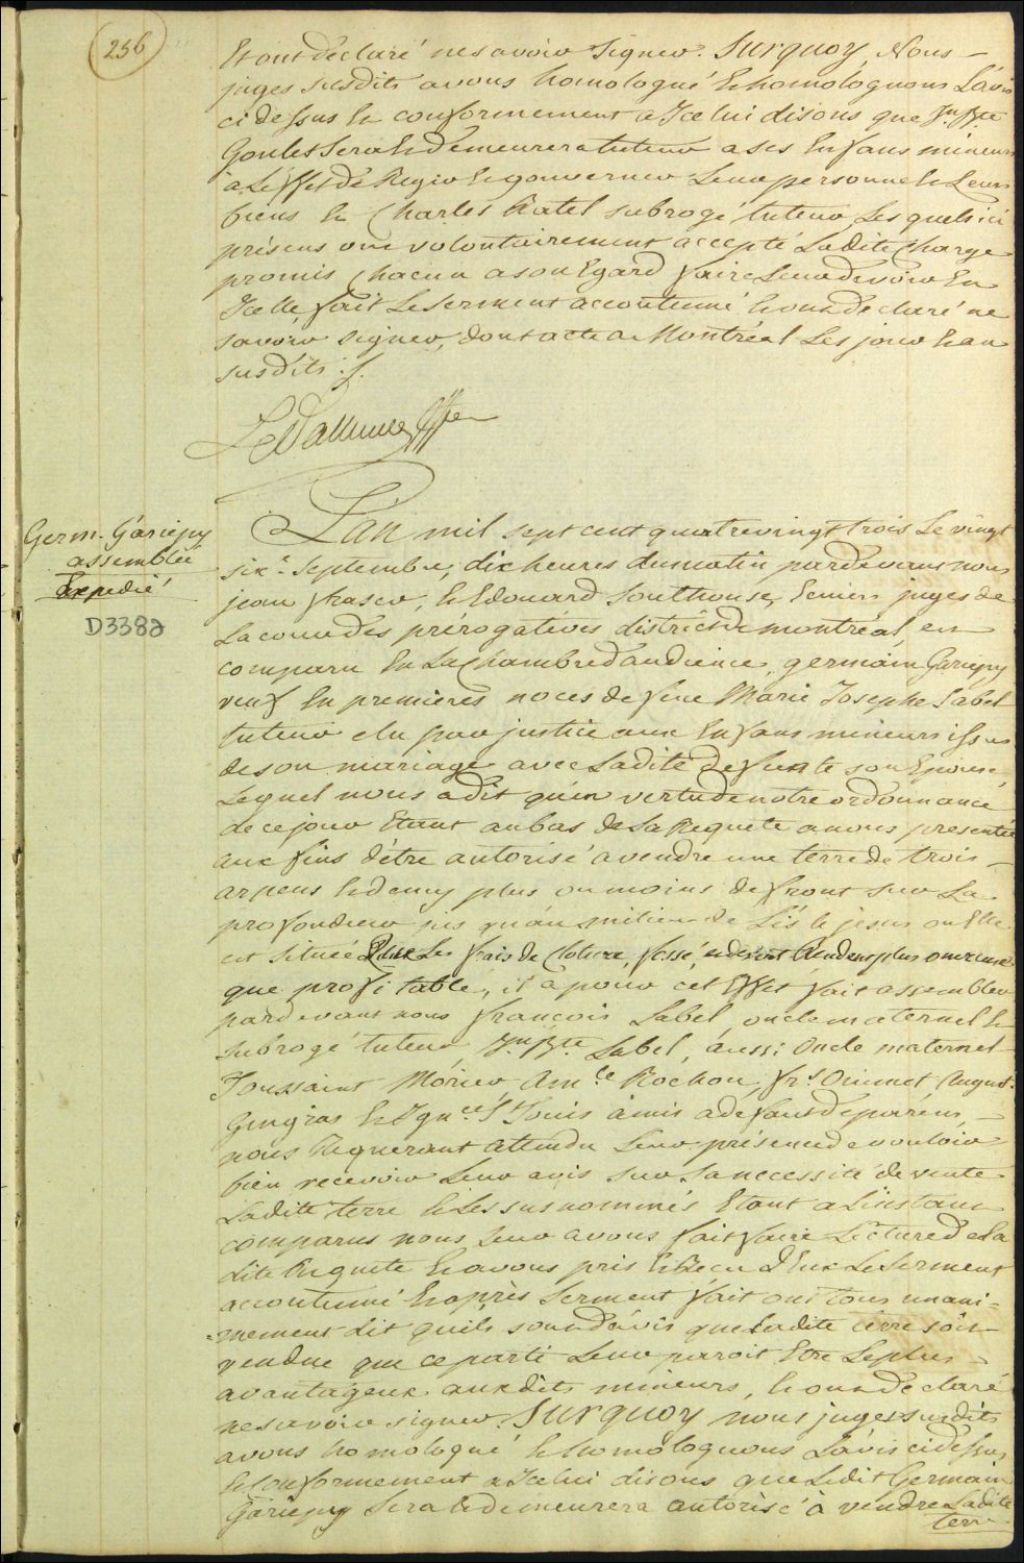 256
Et ont déclaré ne savoir signer. Surquoy Nous
juges susdits avons homologué Et homologuons L'avis
ci dessus Et conformement a Icelui disons que Jn Bte
Goulet sera Et Demeurera tuteur a ses Enfans mineurs
a L'Effet de Regir Et gouverner Leur personne Et Leurs
biens Et Charles Ratel subrogé tuteur, Les quels ici
présens ont volontairement accepté Ladite Charge
promis chacun a son Egard faire Leur devoir En
Icelle, fait Le serment accoutumé Et ont declaré ne
savoir signer, dont acte a Montréal Les jour Et an
susdits ./.
Germ. Gariépy
assemblée
Expedié
D338
L'an mil sept cent quatrevingt trois Le vingt
six septembre, dix heures du matin pardevant nous
jean fraser, Et Edouard Southouse, Ecuiers juges de
La cour des prérogatives district de montréal, est
comparu En La Chambre d'audience, germain Gariepy
veuf En premieres noces de feue Marie Josephe Label
tuteur elu par justice aux Enfans mineurs issus
de son mariage avec Ladite Defunte son Epouse
Lequel nous a dit qu'en vertu de notre ordonnance
de ce jour Etant au bas de La Requete a nous presentée
aux fins d'être autorisé a vendre une terre de trois
arpens Et demy plus ou moins de front sur La
profondeur jus qu'au milieu de L'isle jesus ou Elle
est située Que Les frais de Cloture, fossé, rendent plus onereuse
que profitable, il a pour cet Effet fait assembler
pardevant nous françois Label oncle maternel Et
subrogé tuteur, Jn Bte Label, aussi oncle maternel
Toussaint Mórier Amble Rochon, frs Ouimet August.
Gingras Et Ignce St Louis amis a defaut de parens,
nous Requerant attendu Leur présence de vouloir
bien recevoir Leur avis sur La necessité de vente
Ladite terre Et Les susnommés Etant a L'instant
comparus nous Leur avons fait faire Lecture de La
dite Requete Et avons pris Et Recu d'Eux Le serment
accoutumé Et après serment fait ont tous unani=
=mement dit quils sont d'avis que Ladite terre soit
vendue que ce parti Leur paroit Etre Le plus
avantageux auxdits mineurs, Et ont declaré
ne savoir signer. Surquoy nous juges susdits
avons homologué Et homologuons L'avis ci dessus
Et conformement a Icelui disons que Ledit Germain
Gariepy sera Et demeurera autorisé à vendre Ladite
terre